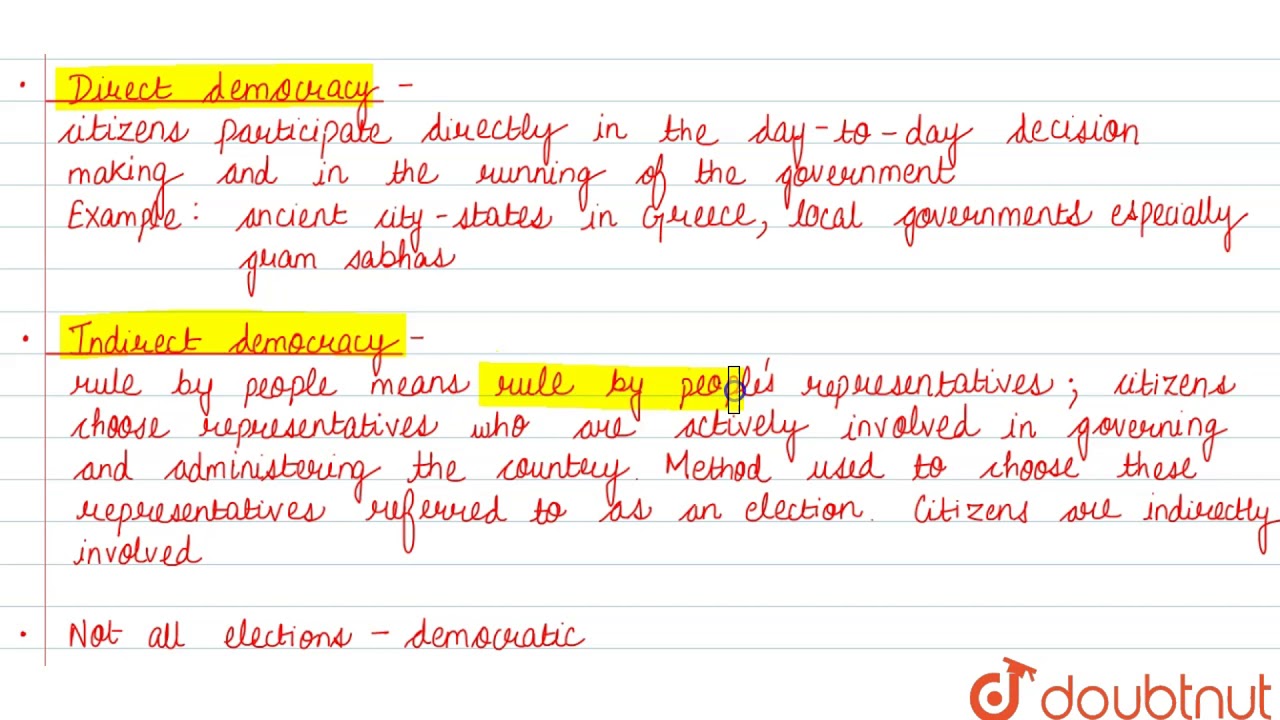 • Direct democracy -
citizens participate directly in the day-to-day decision
making and in the running of the government
Example: ancient city-states in Greece, local governments especially
gram sabhas
• Indirect democracy -
rule by people means rule by people's representatives; citizens
choose representatives who are actively involved in governing
and administering the country. Method used to choose these
representatives referred to as an election. Citizens are indirectly
involved
• Not all elections - democratic
doubtnut